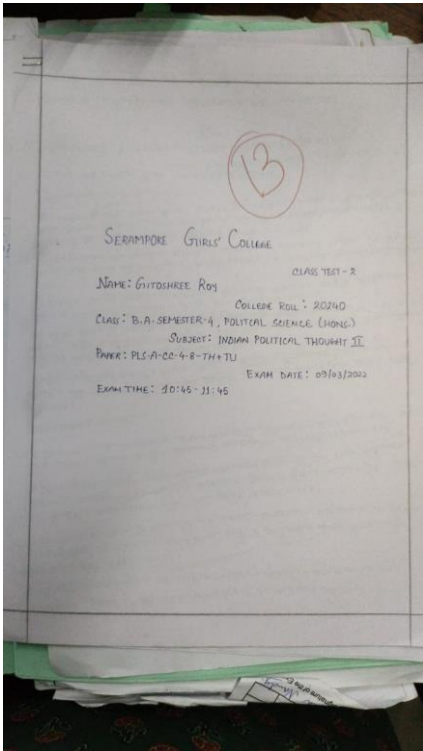 13
SERAMPORE GIRLS' COLLEGE
CLASS TEST - 2
NAME: GITOSHREE ROY
COLLEGE ROLL: 20240
CLASS: B.A. SEMESTER-4, POLITCAL SCIENCE (HONS.)
SUBJECT: INDIAN POLITICAL THOUGHT II
PAPER: PLS-A-CC-4-8-TH+TU
EXAM DATE: 09/03/2022
EXAM TIME: 10:45-11:45